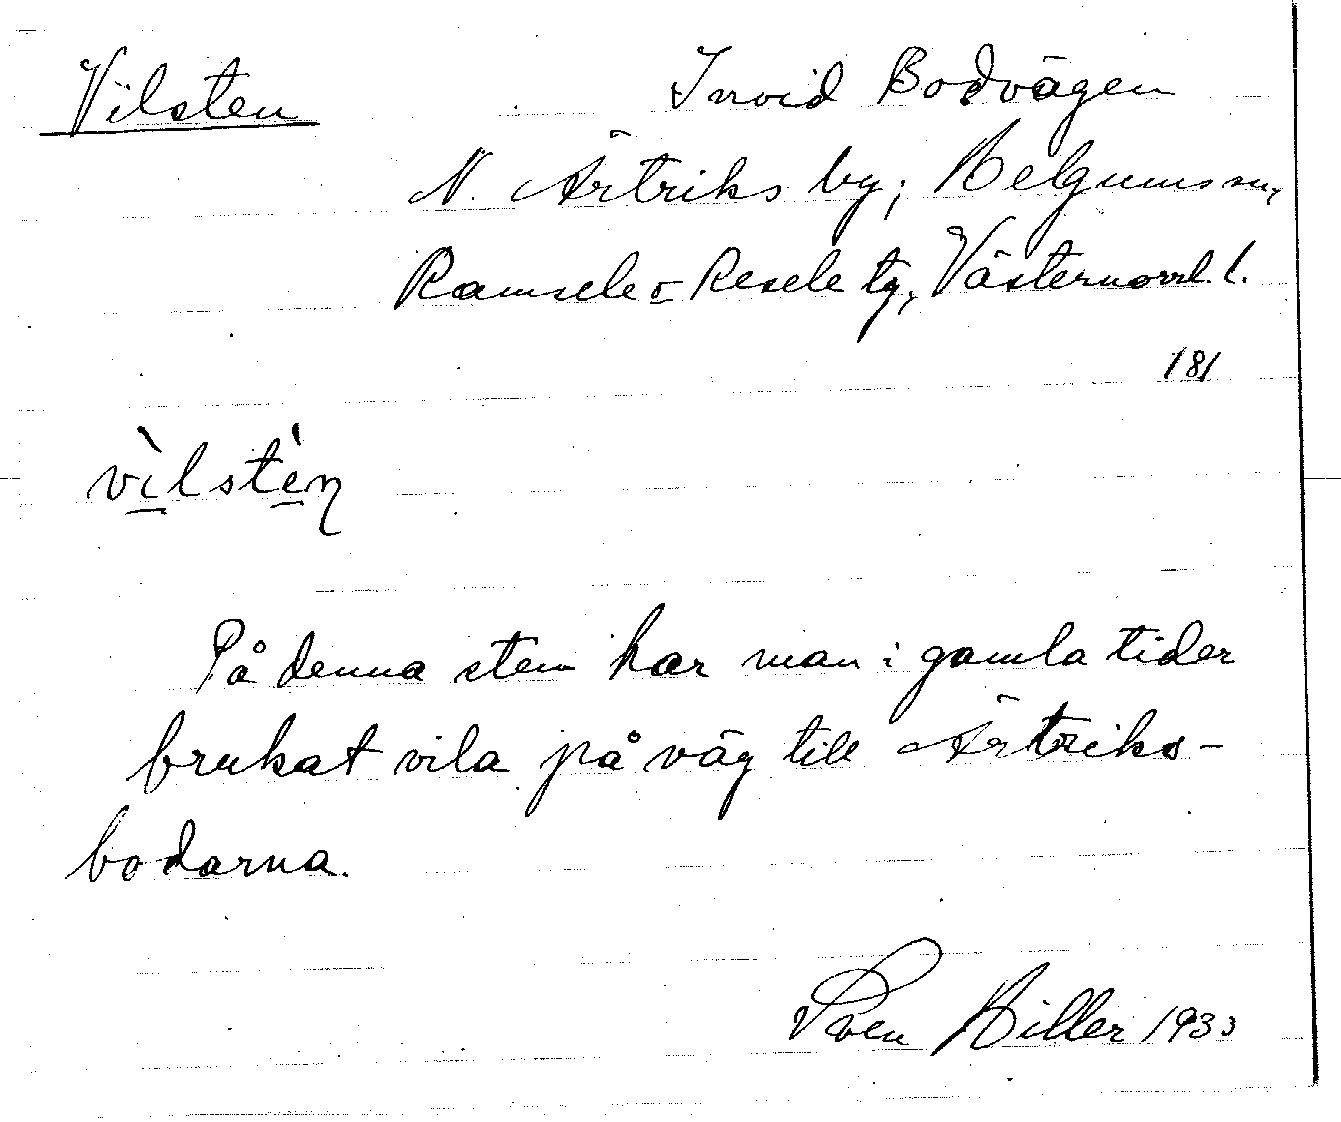 Vilsten
Invid Bodvägen
N. Ärtriks by, Helgums sn,
Ramsele o Resele tg, Västernorrl. l.
181
vìlstèn
På denna sten har man i gamla tider
brukat vila på väg till Ärtriks-
bodarna.
Sven Hiller 1933